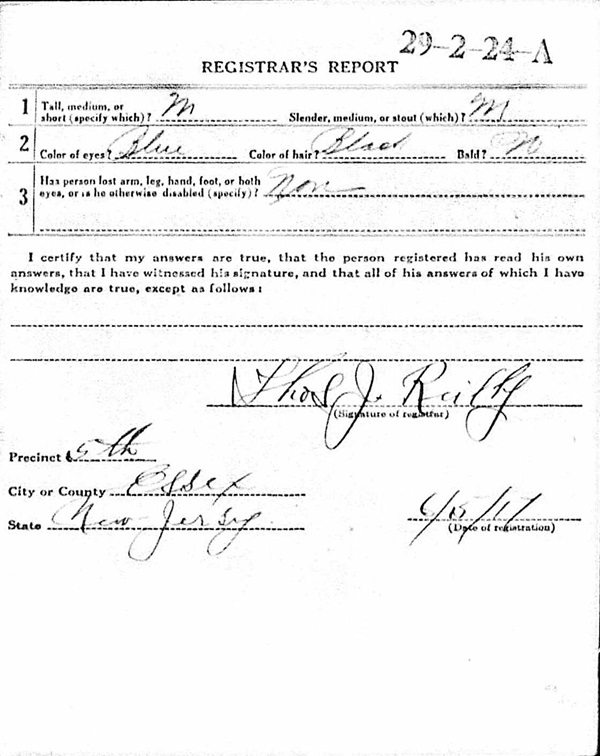 29-2-24-A
REGISTRAR'S REPORT
1 Tall, medium, or short (specify which)? M Slender, medium, or stout (which)? M
2 Color of eyes? Blue Color of hair? Black Bald? No
3 Has person lost arm, leg, hand, foot, or both
eyes, or is he otherwise disabled (specify)? Non
I certify that my answers are true, that the person registered has read his own
answers, that I have witnessed his signature, and that all of his answers of which I have
knowledge are true, except as follows:
Thos J. Reilly
(Signature of registrar)
Precinct 5th
City or County Essex
State New Jersey 6/5/17
(Date of registration)